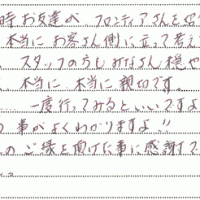 時お友達が フロンティアさんをせ
本当に お客さん側に立って考え
スタッフの方も みなさん 穏や
本当に 本当に 親切です。
一度行ってみるといいですよ
事が よくわかりますよ!!
のご縁を頂けた事に感謝して